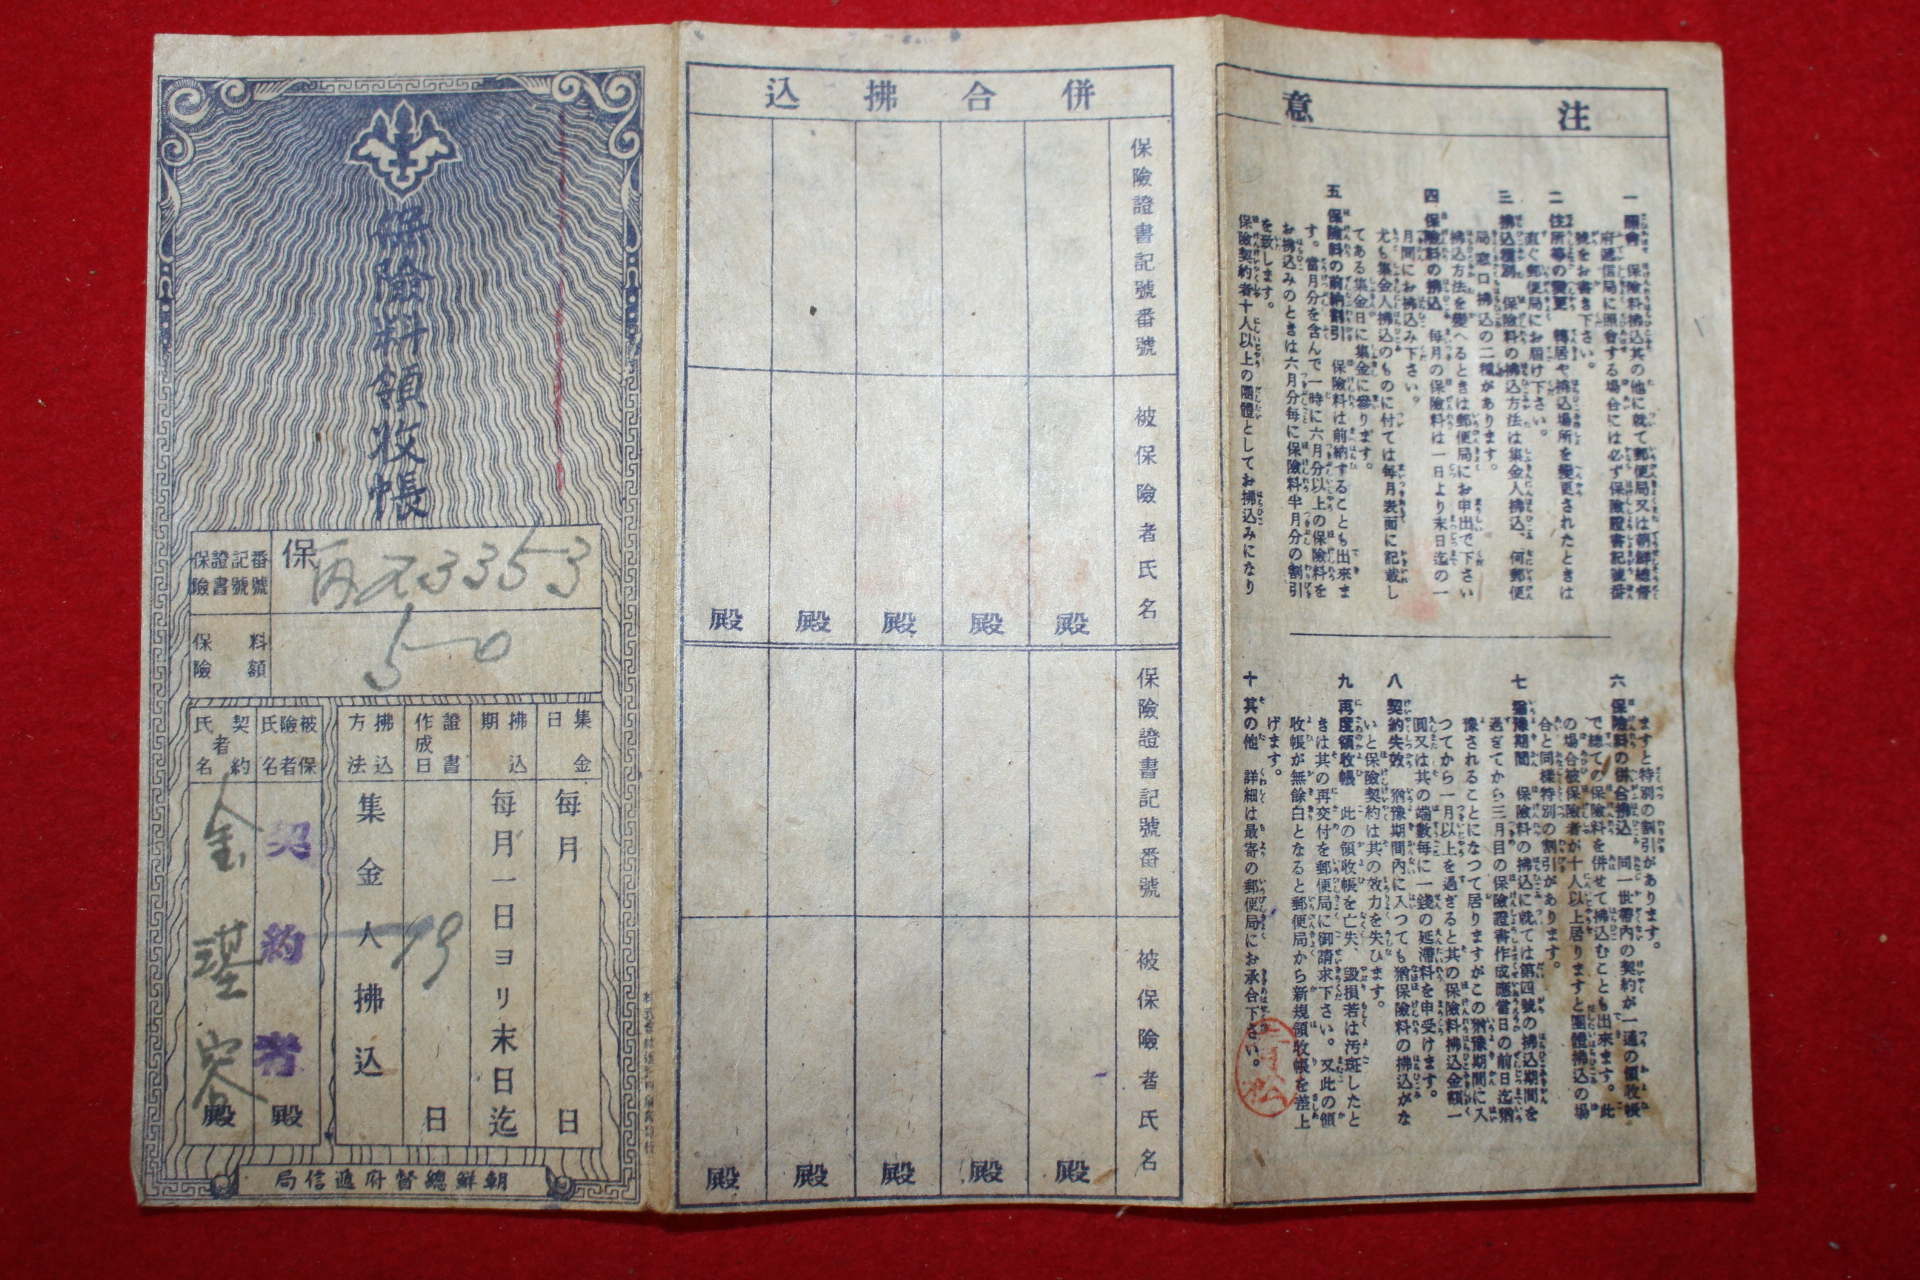 保險料領收帳
保險證書記號番號
保
33353
保險料額
50
集金日
每月 日
拂込期
每月一日ヨリ末日迄
證書作成日
19
日
拂込方法
集金人拂込
被保險者氏名
契約者
殿
契約者氏名
金
殿
朝鮮總督府遞信局
併合拂込
保險證書記號番號
被保險者氏名
殿
殿
殿
殿
殿
保險證書記號番號
被保險者氏名
殿
殿
殿
殿
殿
注意
一 照會 保險料拂込其の他に就て郵便局又は朝鮮總督
府遞信局に照會する場合には必ず保險證書記號番
號をお書き下さい。
二 住所等の變更 轉居や拂込場所を變更されたときは
直ぐ郵便局にお屆け下さい。
三 拂込種別 保險料の拂込方法は集金人拂込、何郵便
局窓口拂込の二種があります。
拂込方法を變へるときは郵便局にお申出で下さい
四 保險料の拂込 每月の保險料は一日より末日迄の一
月間にお拂込み下さい。
尤も集金人拂込のものに付ては每月表面に記載し
てある集金日に集金に參ります。
五 保險料の前納割引 保險料は前納することも出來ま
す。當月分を含んで一時に六月分以上の保險料を
お拂込みのときは六月分每に保險料半月分の割引
を致します。
保險契約者十人以上の團體としてお拂込みになり
ますと特別の割引があります。
六 保險料の併合拂込 同一世帶內の契約が一通の領收帳
で總ての保險料を併せて拂込むことも出來ます。此
の場合被保險者が十人以上居りますと團體拂込の場
合と同樣特別の割引があります。
七 猶豫期間 保險料の拂込に就ては第四號の拂込期間を
過ぎてから三月目の保險證書作成應當日の前日迄猶
豫されることになつて居りますがこの猶豫期間に入
つてから一月以上を過ぎると其の保險料拂込金額一
圓又は其の端數每に一錢の延滯料を申受けます。
八 契約失效 猶豫期間內に入つても猶保險料の拂込がな
いと保險契約は其の效力を失ひます。
九 再度領收帳 此の領收帳を亡失、毀損若は汚斑したと
きは其の再交付を郵便局に御請求下さい。又此の領
收帳が無餘白となると郵便局から新規領收帳を差上
げます。
十 其の他 詳細は最寄の郵便局にお承合下さい。